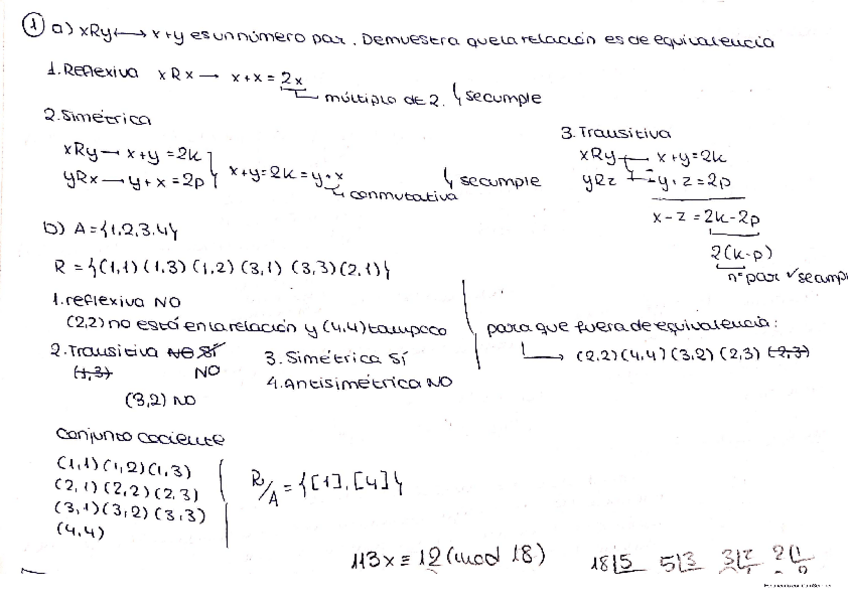 ① a) xRy ⟷ x+y es un número par. Demuestra que la relación es de equivalencia
1. Reflexiva xRx → x+x = 2x
múltiplo de 2. ↳ se cumple
2. Simétrica
xRy → x+y = 2k
yRx → y+x = 2p
x+y = 2k = y+x
↳ conmutativa
↳ se cumple
3. Transitiva
xRy → x+y = 2k
yRz → y+z = 2p
x-z = 2k-2p
2(k-p)
nº par ✓ se cump
b) A = {1,2,3,4}
R = {(1,1) (1,3) (1,2) (3,1) (3,3) (2,1)}
1. reflexiva NO
(2,2) no está en la relación y (4,4) tampoco
2. Transitiva NO SÍ
(1,3) NO
(3,2) NO
3. Simétrica Sí
4. Antisimétrica NO
para que fuera de equivalencia:
↳ (2,2) (4,4) (3,2) (2,3) (2,3)
conjunto cociente
(1,1) (1,2) (1,3)
(2,1) (2,2) (2,3)
(3,1) (3,2) (3,3)
(4,4)
R/A = {[1], [4]}
113x ≡ 12 (mod 18)
18|5 5|3 3|2 2|1